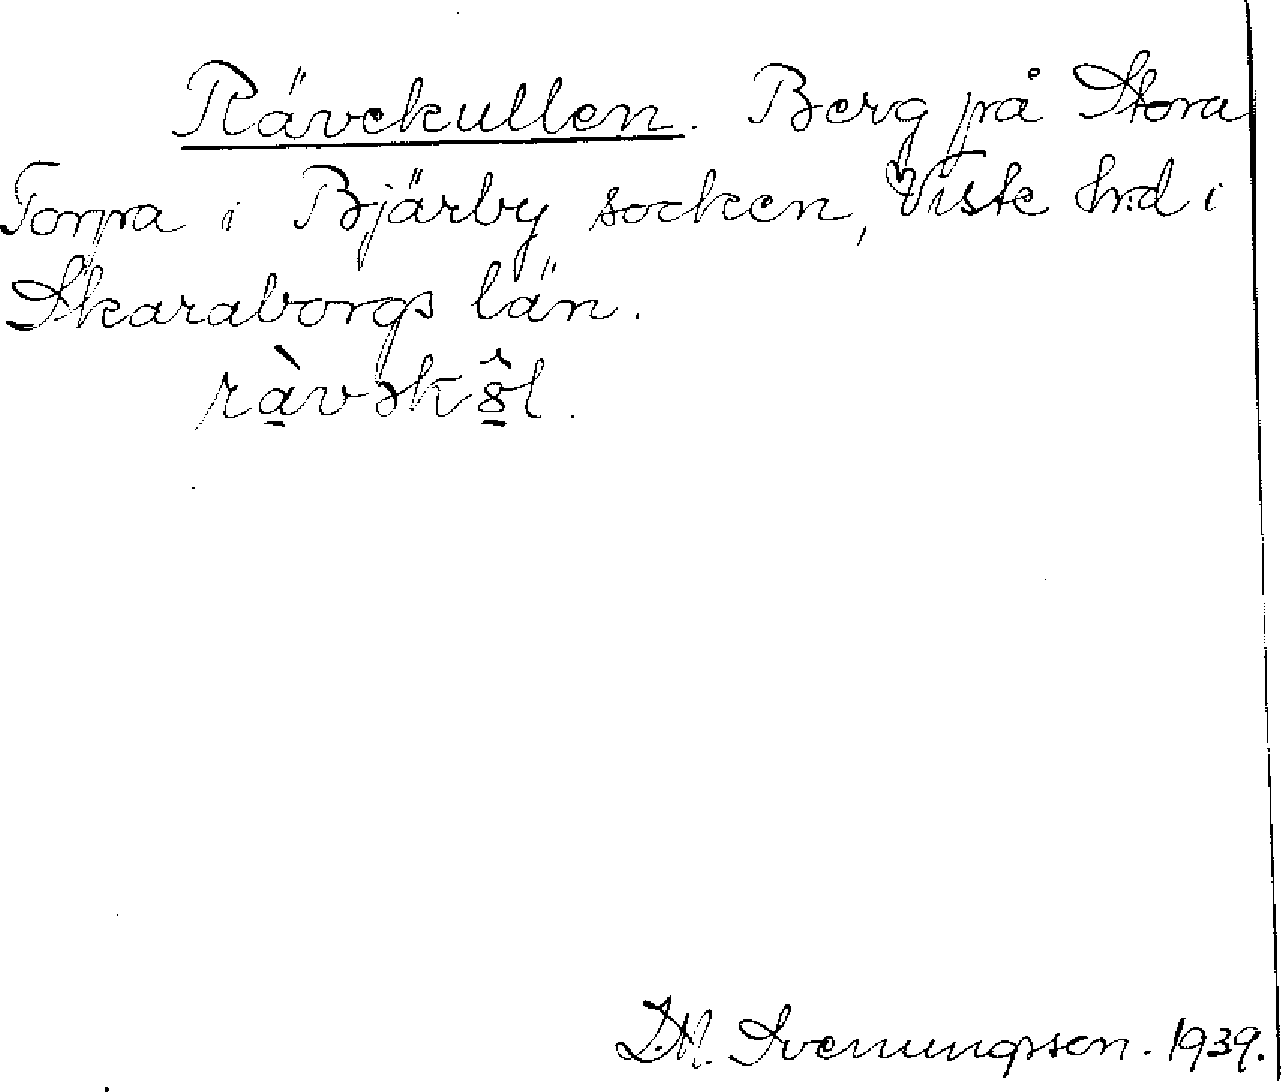 Rävekullen. Berg på Stora
Torpa i Bjärby socken, Viste hrd i
Skaraborgs län.
ràvəkôl.
D.N. Svenungsson. 1939.